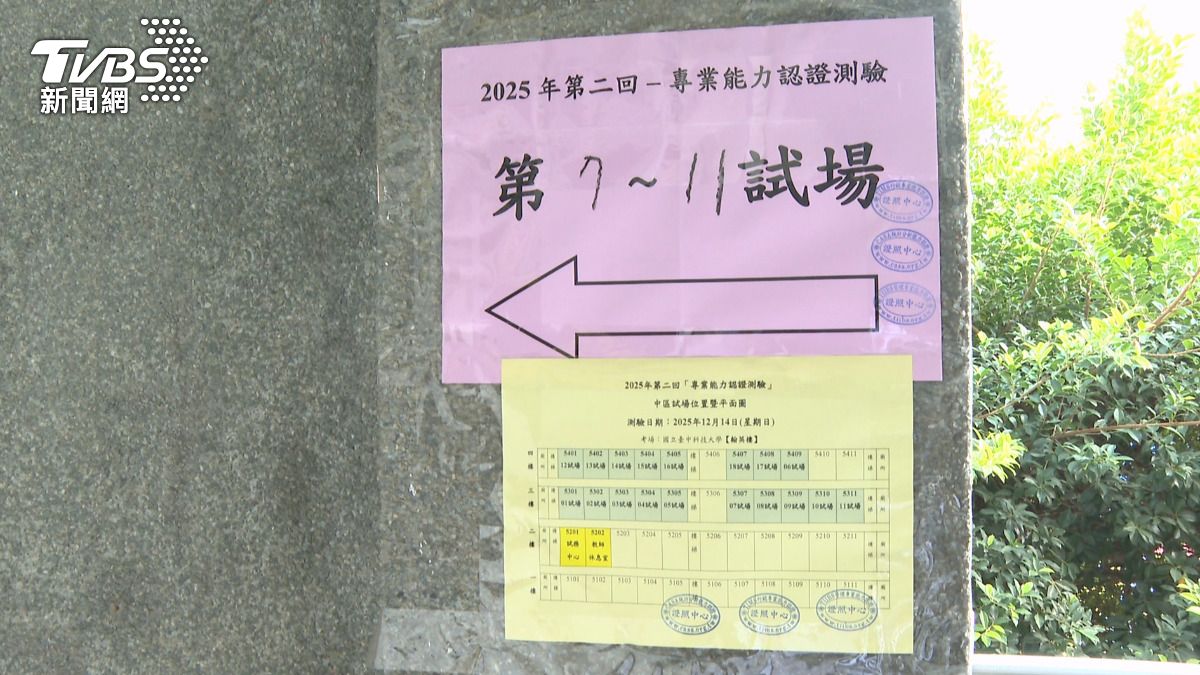 TVBS
新聞網
2025 年第二回 – 專業能力認證測驗
第 7 ~ 11 試場
證照中心
證照中心
證照中心
2025年第二回「專業能力認證測驗」
中區試場位置暨平面圖
測驗日期：2025年12月14日(星期日)
考場：國立臺中科技大學【翰英樓】
四樓 廁所 樓梯 5401 5402 5403 5404 5405 樓梯 5406 5407 5408 5409 5410 5411 樓梯 廁所
12試場 13試場 14試場 15試場 16試場 18試場 17試場 06試場
三樓 廁所 樓梯 5301 5302 5303 5304 5305 樓梯 5306 5307 5308 5309 5310 5311 樓梯 廁所
01試場 02試場 03試場 04試場 05試場 07試場 08試場 09試場 10試場 11試場
二樓 廁所 樓梯 5201 5202 5203 5204 5205 樓梯 5206 5207 5208 5209 5210 5211 樓梯 廁所
試務中心 教師休息室
一樓 廁所 樓梯 5101 5102 5103 5104 5105 樓梯 5106 5107 5108 5109 5110 5111 樓梯 廁所
證照中心 證照中心 證照中心